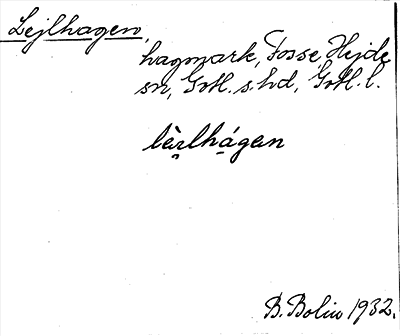 Lejlhagen,
hagmark, Fosse, Hejde
sn, Gotl. s. hd, Gotl. l.
lèṛlhágen
B. Bolin 1932.